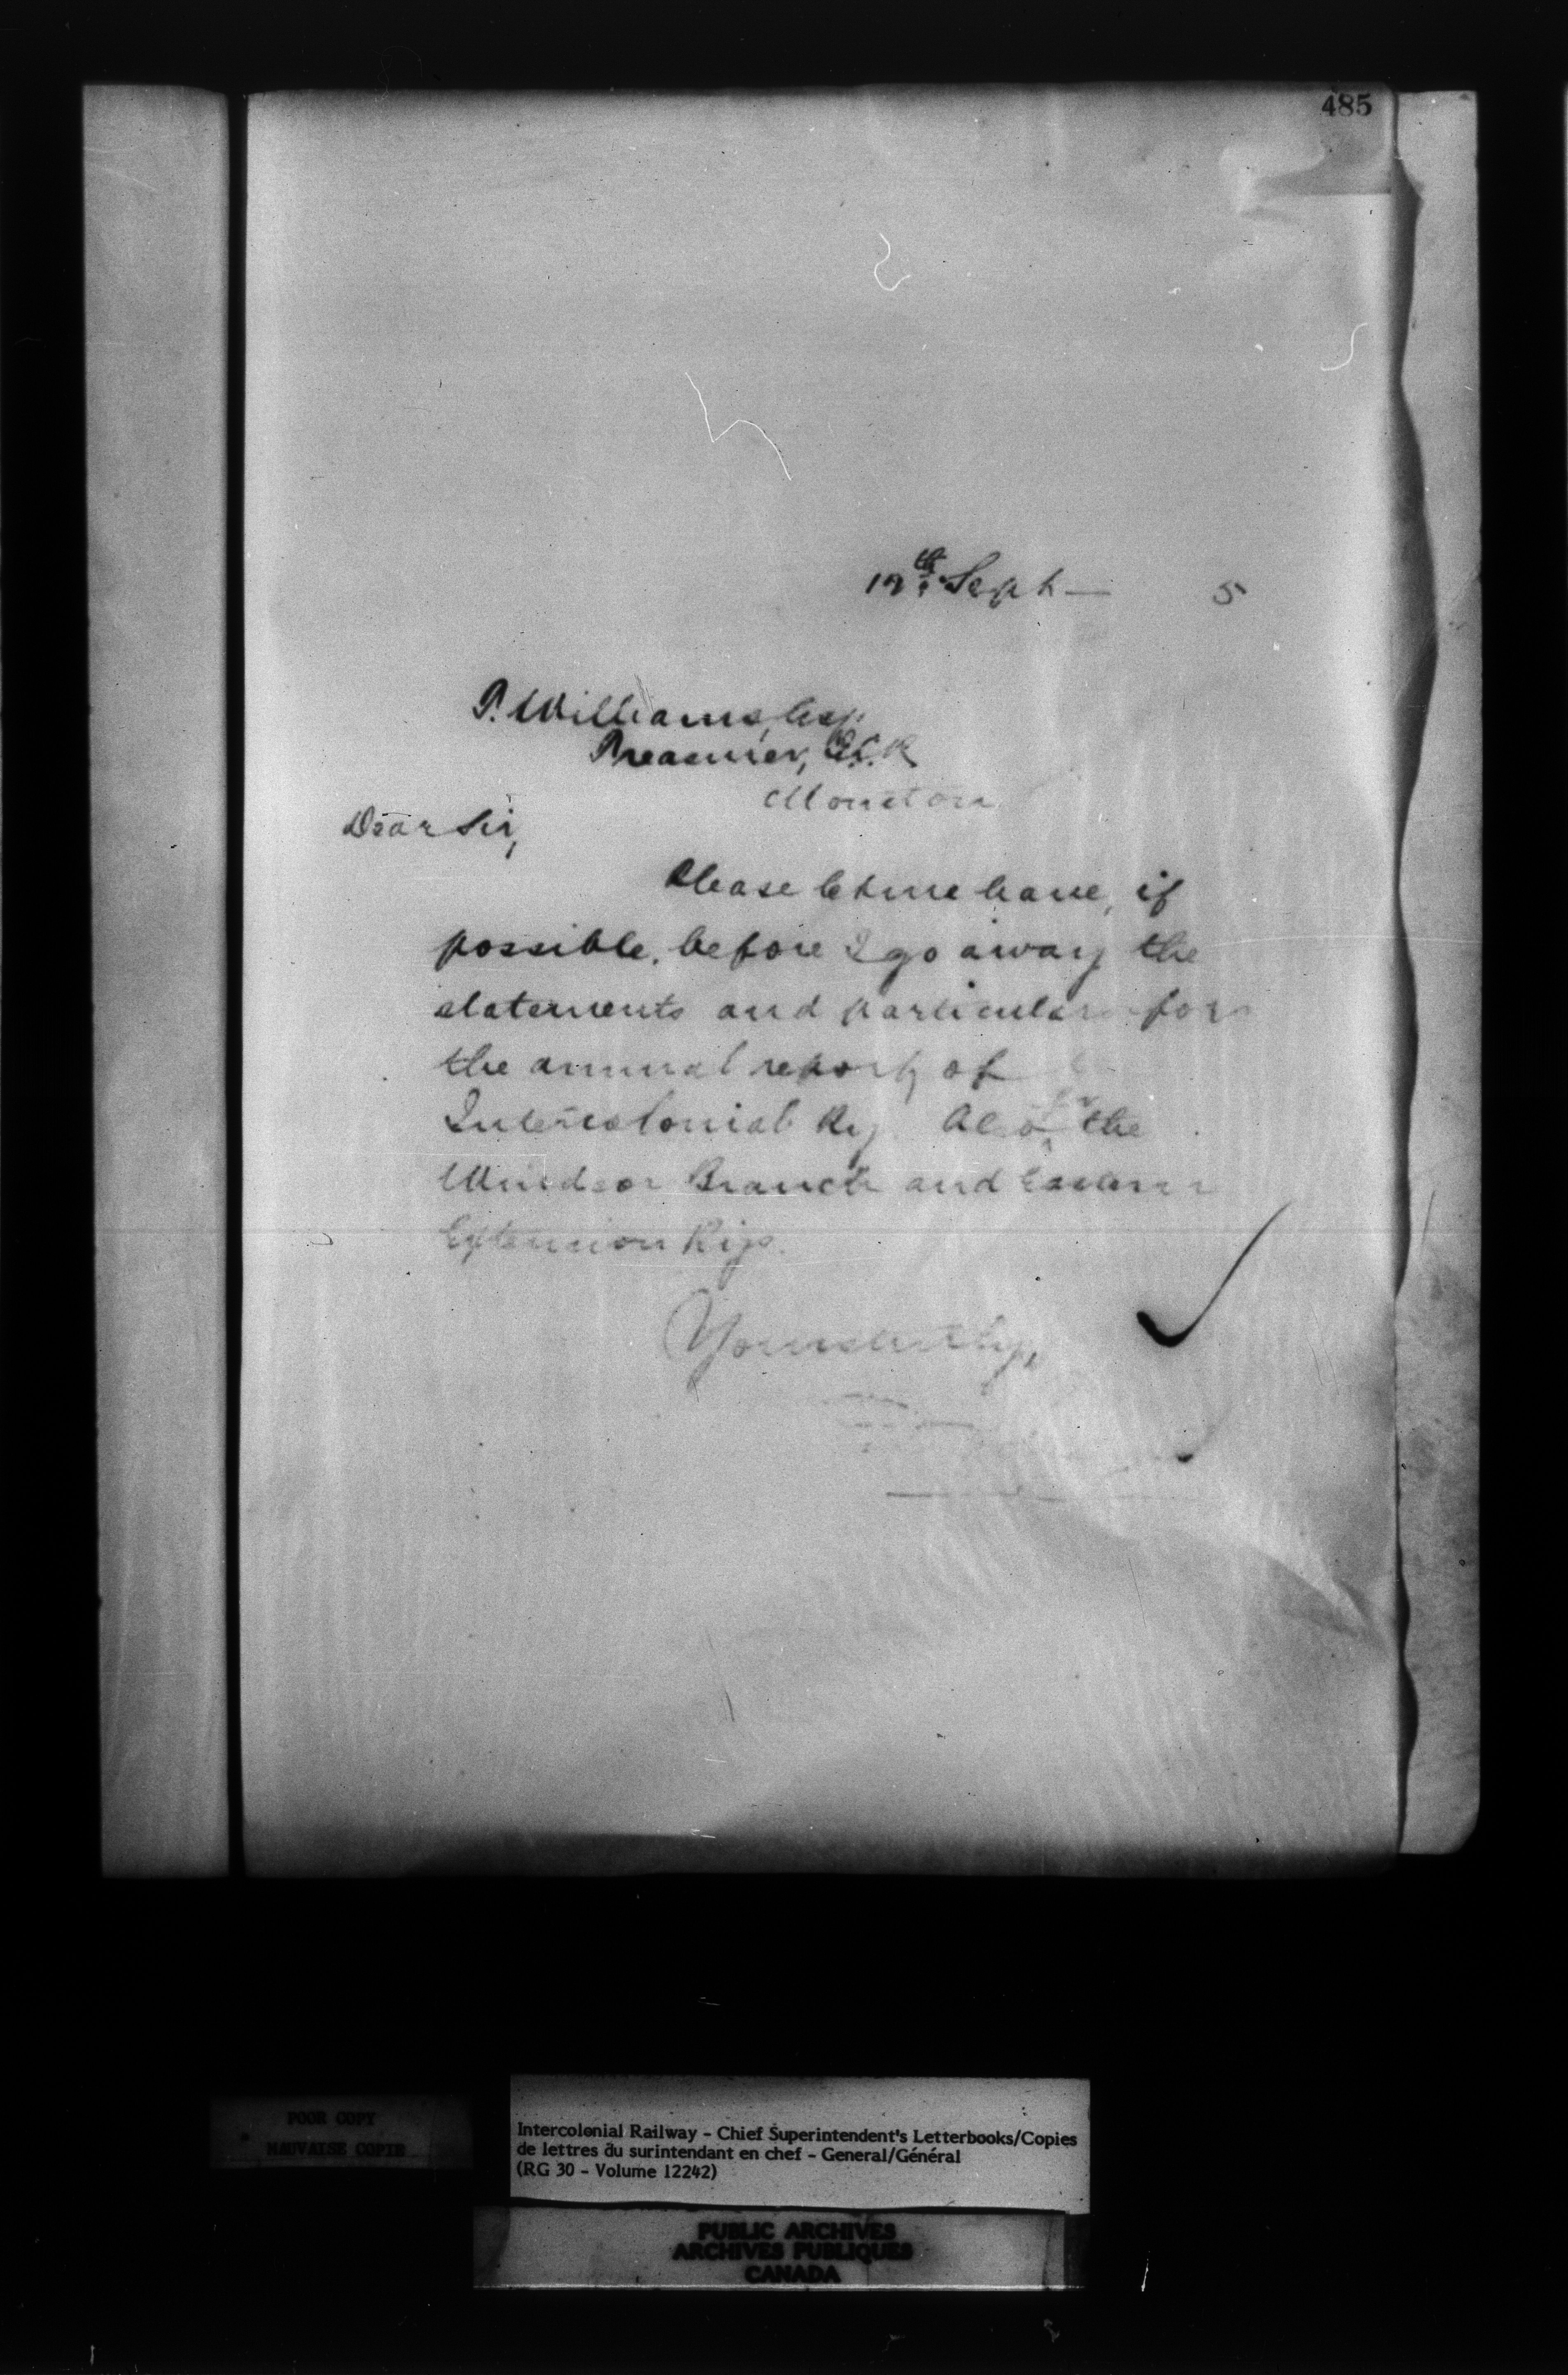 485
17th Sept — 5
T. Williams, Esq
Treasurer, I.C.R
Moncton
Dear Sir,
Please let me have, if
possible, before I go away the
statements and particulars for
the annual report of
Intercolonial Ry. Also for the
Windsor Branch and Eastern
Extension Rys.
Yours truly,
POOR COPY
MAUVAISE COPIE
Intercolonial Railway - Chief Superintendent's Letterbooks/Copies
de lettres du surintendant en chef - General/Général
(RG 30 - Volume 12242)
PUBLIC ARCHIVES
ARCHIVES PUBLIQUES
CANADA